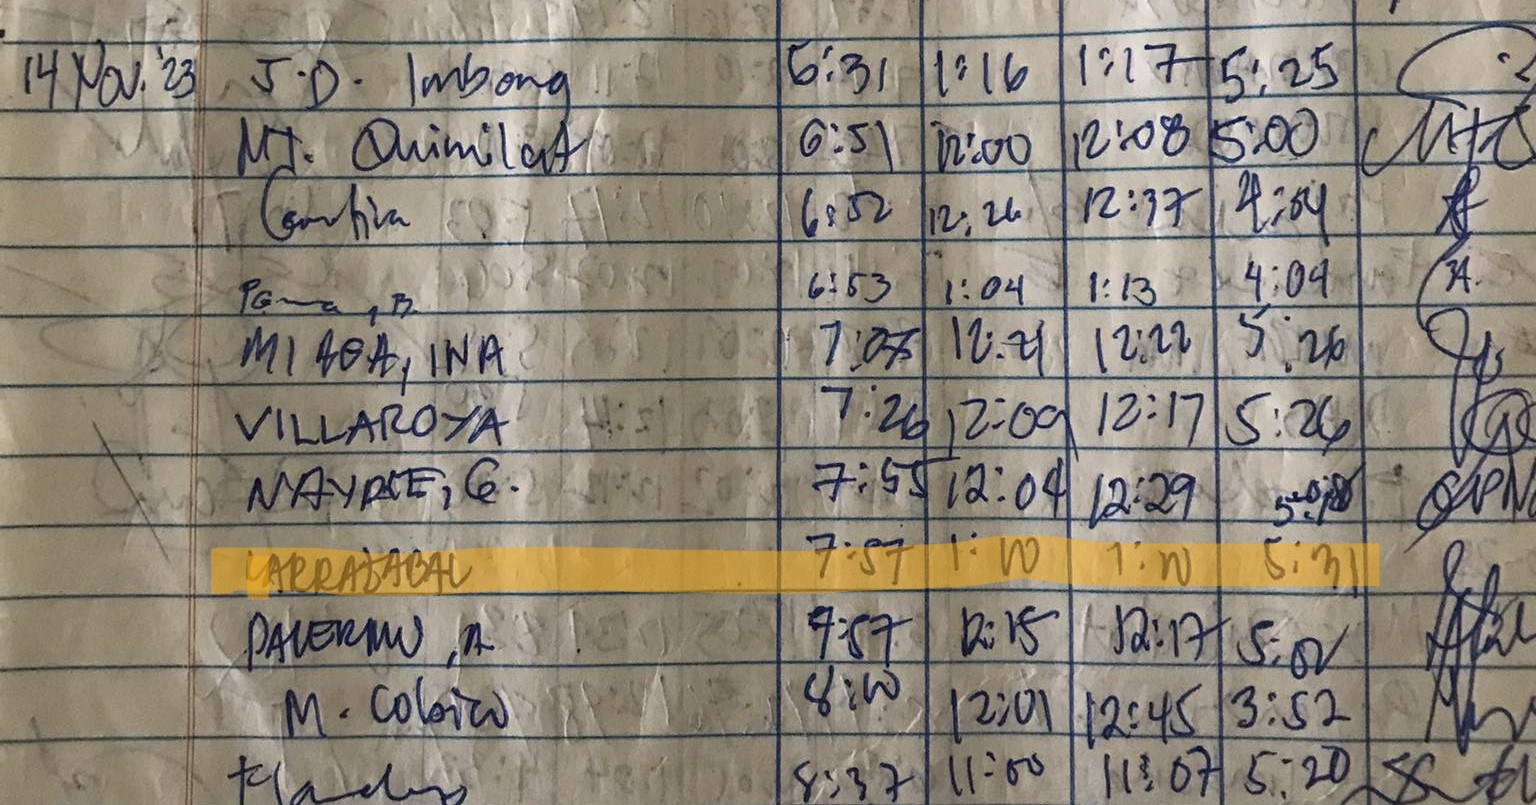 14 Nov. '23 J.D. Imbong 6:31 1:16 1:17 5:25
MJ. Quimilat 6:51 12:00 12:08 5:00
6:52 12:26 12:37 4:04
6:53 1:04 1:13 4:04
MIAGA, INA 7:07 12:21 12:22 5:26
VILLAROYA 7:26 12:09 12:17 5:26
7:55 12:04 12:29
LARRAZABAL 7:57 1:10 1:10 5:31
PALERMO, A 7:57 12:15 12:17 5:02
M. Colorico 8:10 12:01 12:45 3:52
8:37 11:00 11:07 5:20